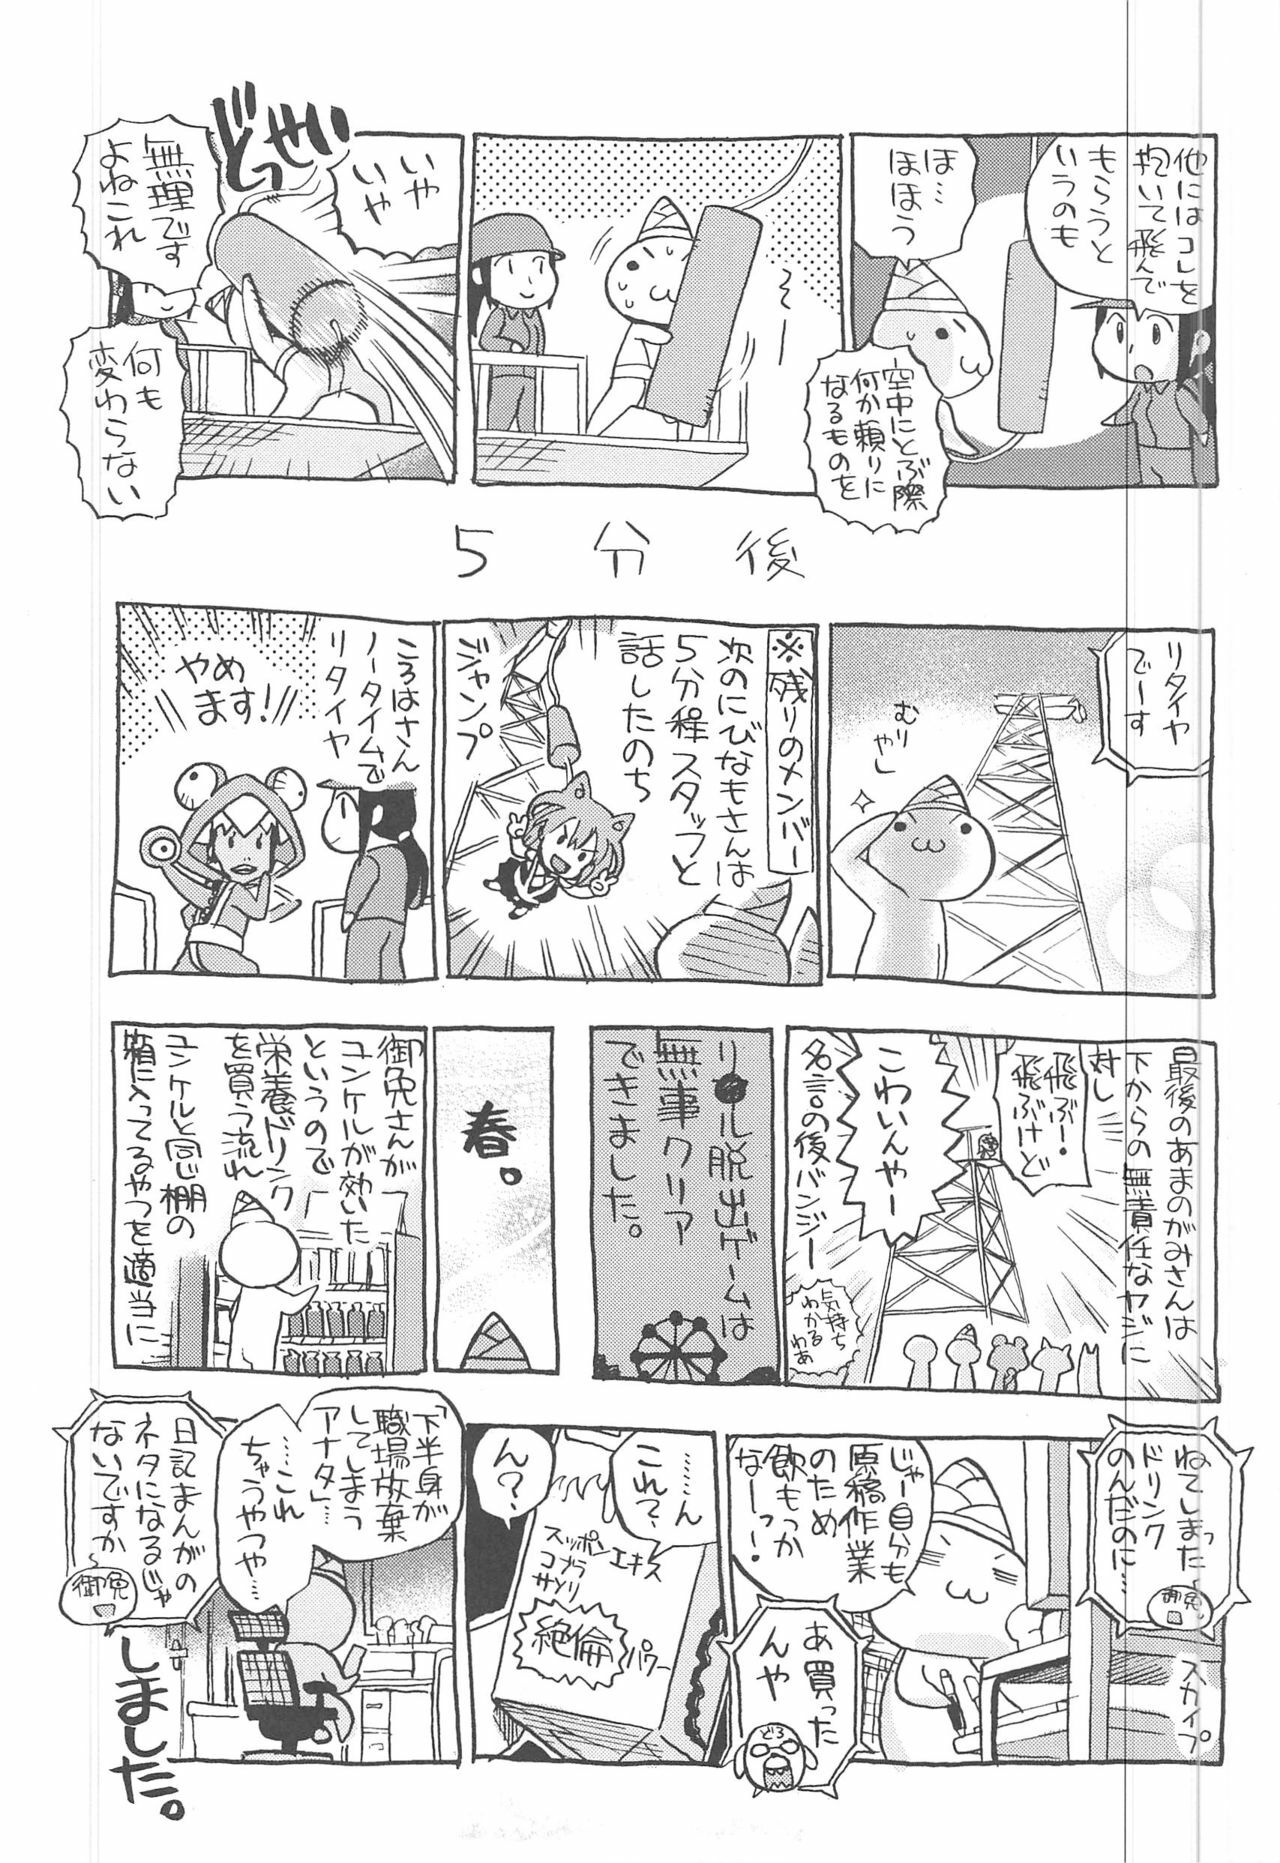 他にはコレを
抱いて飛んで
もらうと
いうのも
ほ…
ほほう
空中にとぶ際
何か頼りに
なるものを
いや
いや
どっせい
無理です
よねこれ
何も
変わらない
5分後
リタイヤ
でーす
むり
やし
※残りのメンバー
次のにびなもさんは
5分程スタッフと
話したのち
ジャンプ
ころはさん
ノータイムで
リタイヤ
やめ
ます!!
最後のあまのがみさんは
下からの無責任なヤジに
対し
飛ぶ!
飛ぶけど
こわいんやー
名言の後バンジー
気持ち
わかる
わぁ
リ●ル脱出ゲームは
無事クリア
できました。
春。
御免さんが
ユンケルが効いた
というので
栄養ドリンク
を買う流れ
ユンケルと同じ棚の
箱に入ってるやつを適当に
ねてしまった
ドリンク
のんだのに…
御免
スカイプ
じゃー自分も
原稿作業
のため
飲もっか
なーっ!
あ買った
んや
どろ
……ん
これ?
ん?
スッポンエキス
コブラ
サソリ
絶倫
パワー
「下半身が
職場放棄
してしまう
アナタ」…
……これ
ちゃうやつや…
日記まんがの
ネタになるじゃ
ないですか
御免
しました。